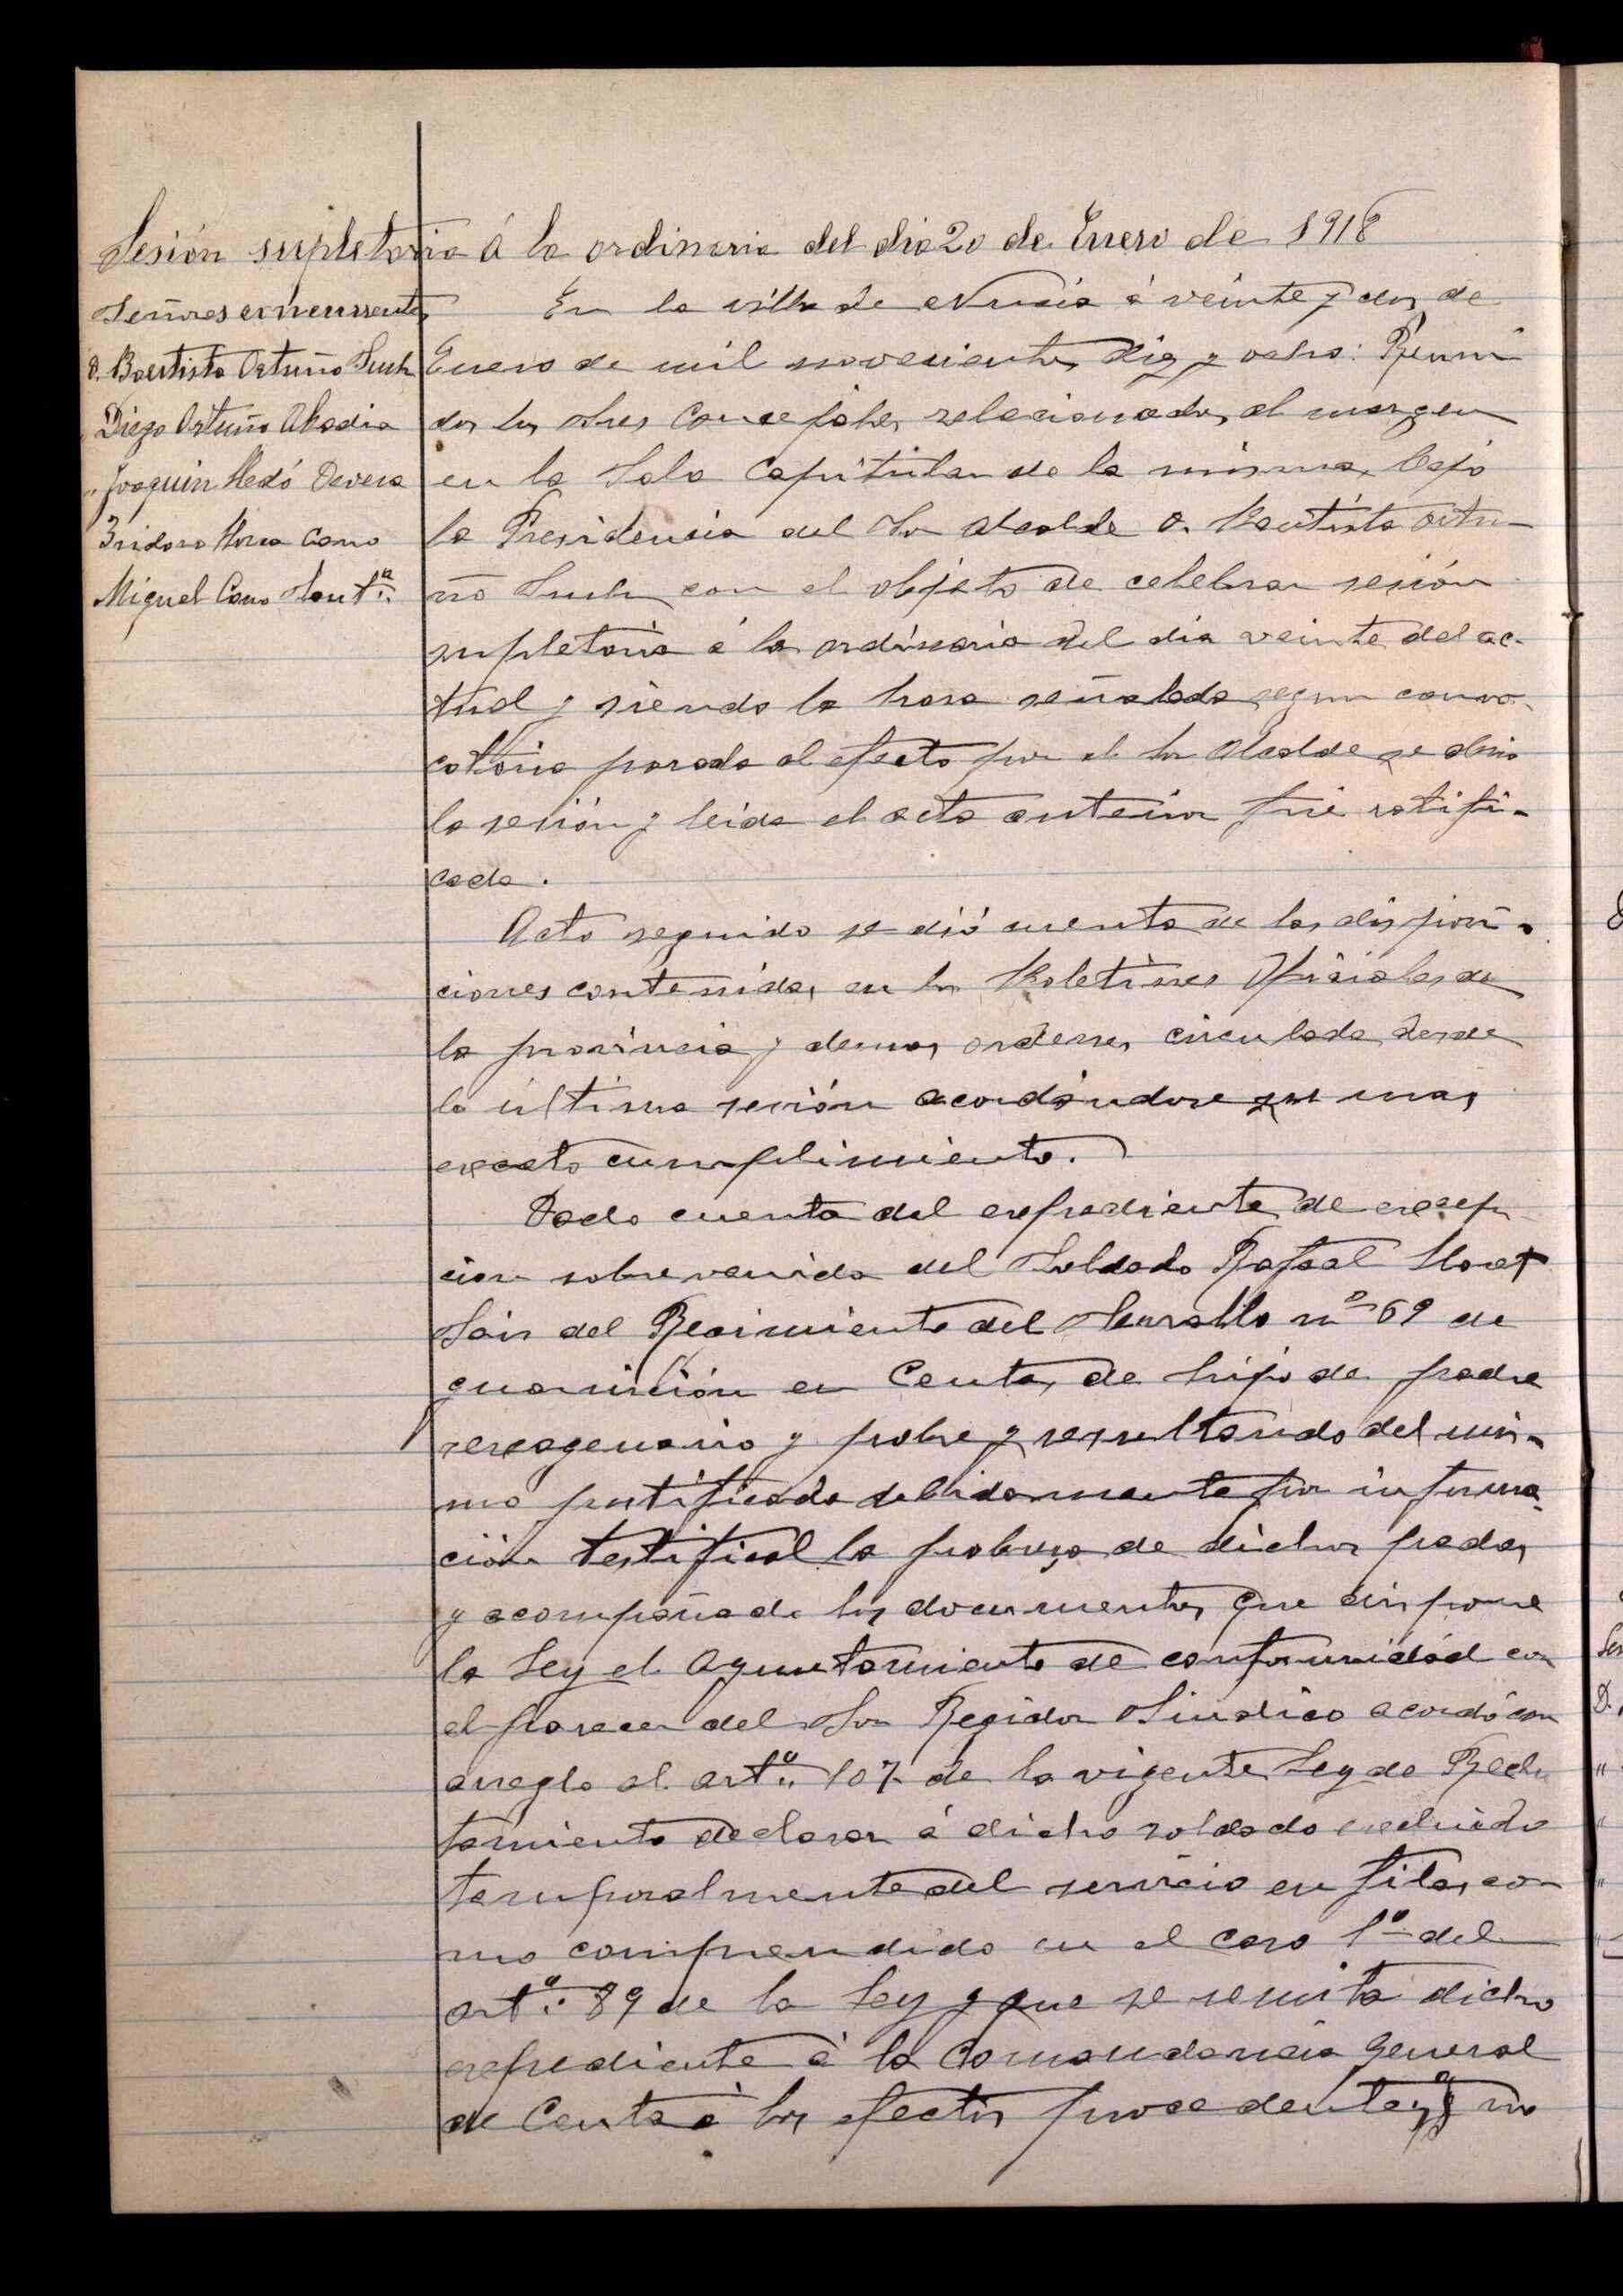 Sesión supletoria á la ordinaria del dia 20 de Enero de 1918
Señores concurrentes
D. Bautista Ortuño Such
" Diego Ortuño Abadia
" Joaquin Lledó Devesa
Isidoro Llorca Cano
Miguel Cano Sant.ª
En la villa de Nucia á veinte y dos de
Enero de mil novecientos diez y ocho: Reuni
dos los Sres Concejales relacionados al margen
en la Sala Capitular de la misma, bajo
la Presidencia del Sor Alcalde D. Bautista Ortu-
ño Such con el objeto de celebrar sesión
supletoria á la ordinaria del dia veinte del ac-
tual y siendo la hora señalada segun convo-
catoria pasada al efecto por el Sor Alcalde se abrio
la sesión y leida el acta anterior fué ratifi-
cada.
Acto seguido se dió cuenta de las disposi-
ciones contenidas en los Boletines Oficiales de
la provincia y demas ordenes circuladas desde
la última sesión acordándose su mas
exacto cumplimiento.
Dada cuenta del expediente de excep
cion sobrevenida del Soldado Rafael Lloret
Sais del Regimiento del Serrallo nº 69 de
guarnición en Ceuta, de hijo de padre
sexagenario y pobre y resultando del mis-
mo justificada debidamente por informa-
ción testifical la pobreza de dichos padres
y acompañado los documentos que dispone
la Ley el Ayuntamiento de conformidad con
el parecer del Sor Regidor Sindico acordó con
arreglo al artº 107 de la vigente Ley de Reclu
tamiento declarar á dicho soldado excluido
temporalmente del servicio en filas co-
mo comprendido en el caso 1º del
artº 89 de la Ley y que se remita dicho
expediente á la Comandancia General
de Ceuta á los efectos procedentes y no